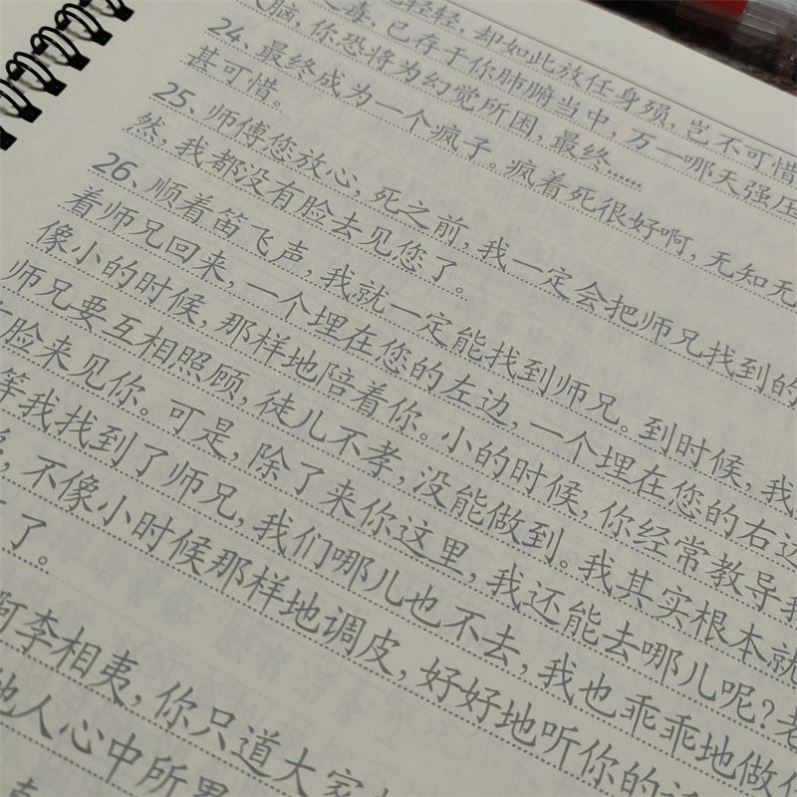 轻轻，却如此放任身殒，岂不可惜
之毒，已存于你肺腑当中，万一哪天强压
脑，你恐将为幻觉所困，最终……
24、最终成为一个疯子。疯着死很好啊，无知无
甚可惜。
25、师傅您放心，死之前，我一定会把师兄找到的
然，我都没有脸去见您了。
26、顺着笛飞声，我就一定能找到师兄。到时候，我
着师兄回来，一个埋在您的左边，一个埋在您的右边
像小的时候，那样地陪着你。小的时候，你经常教导我
师兄要互相照顾，徒儿不孝，没能做到。我其实根本就
脸来见你。可是，除了来你这里，我还能去哪儿呢？老
等我找到了师兄，我们哪儿也不去，我也乖乖地做你
，不像小时候那样地调皮，好好地听你的
了。
李相夷，你只道大家
他人心中所